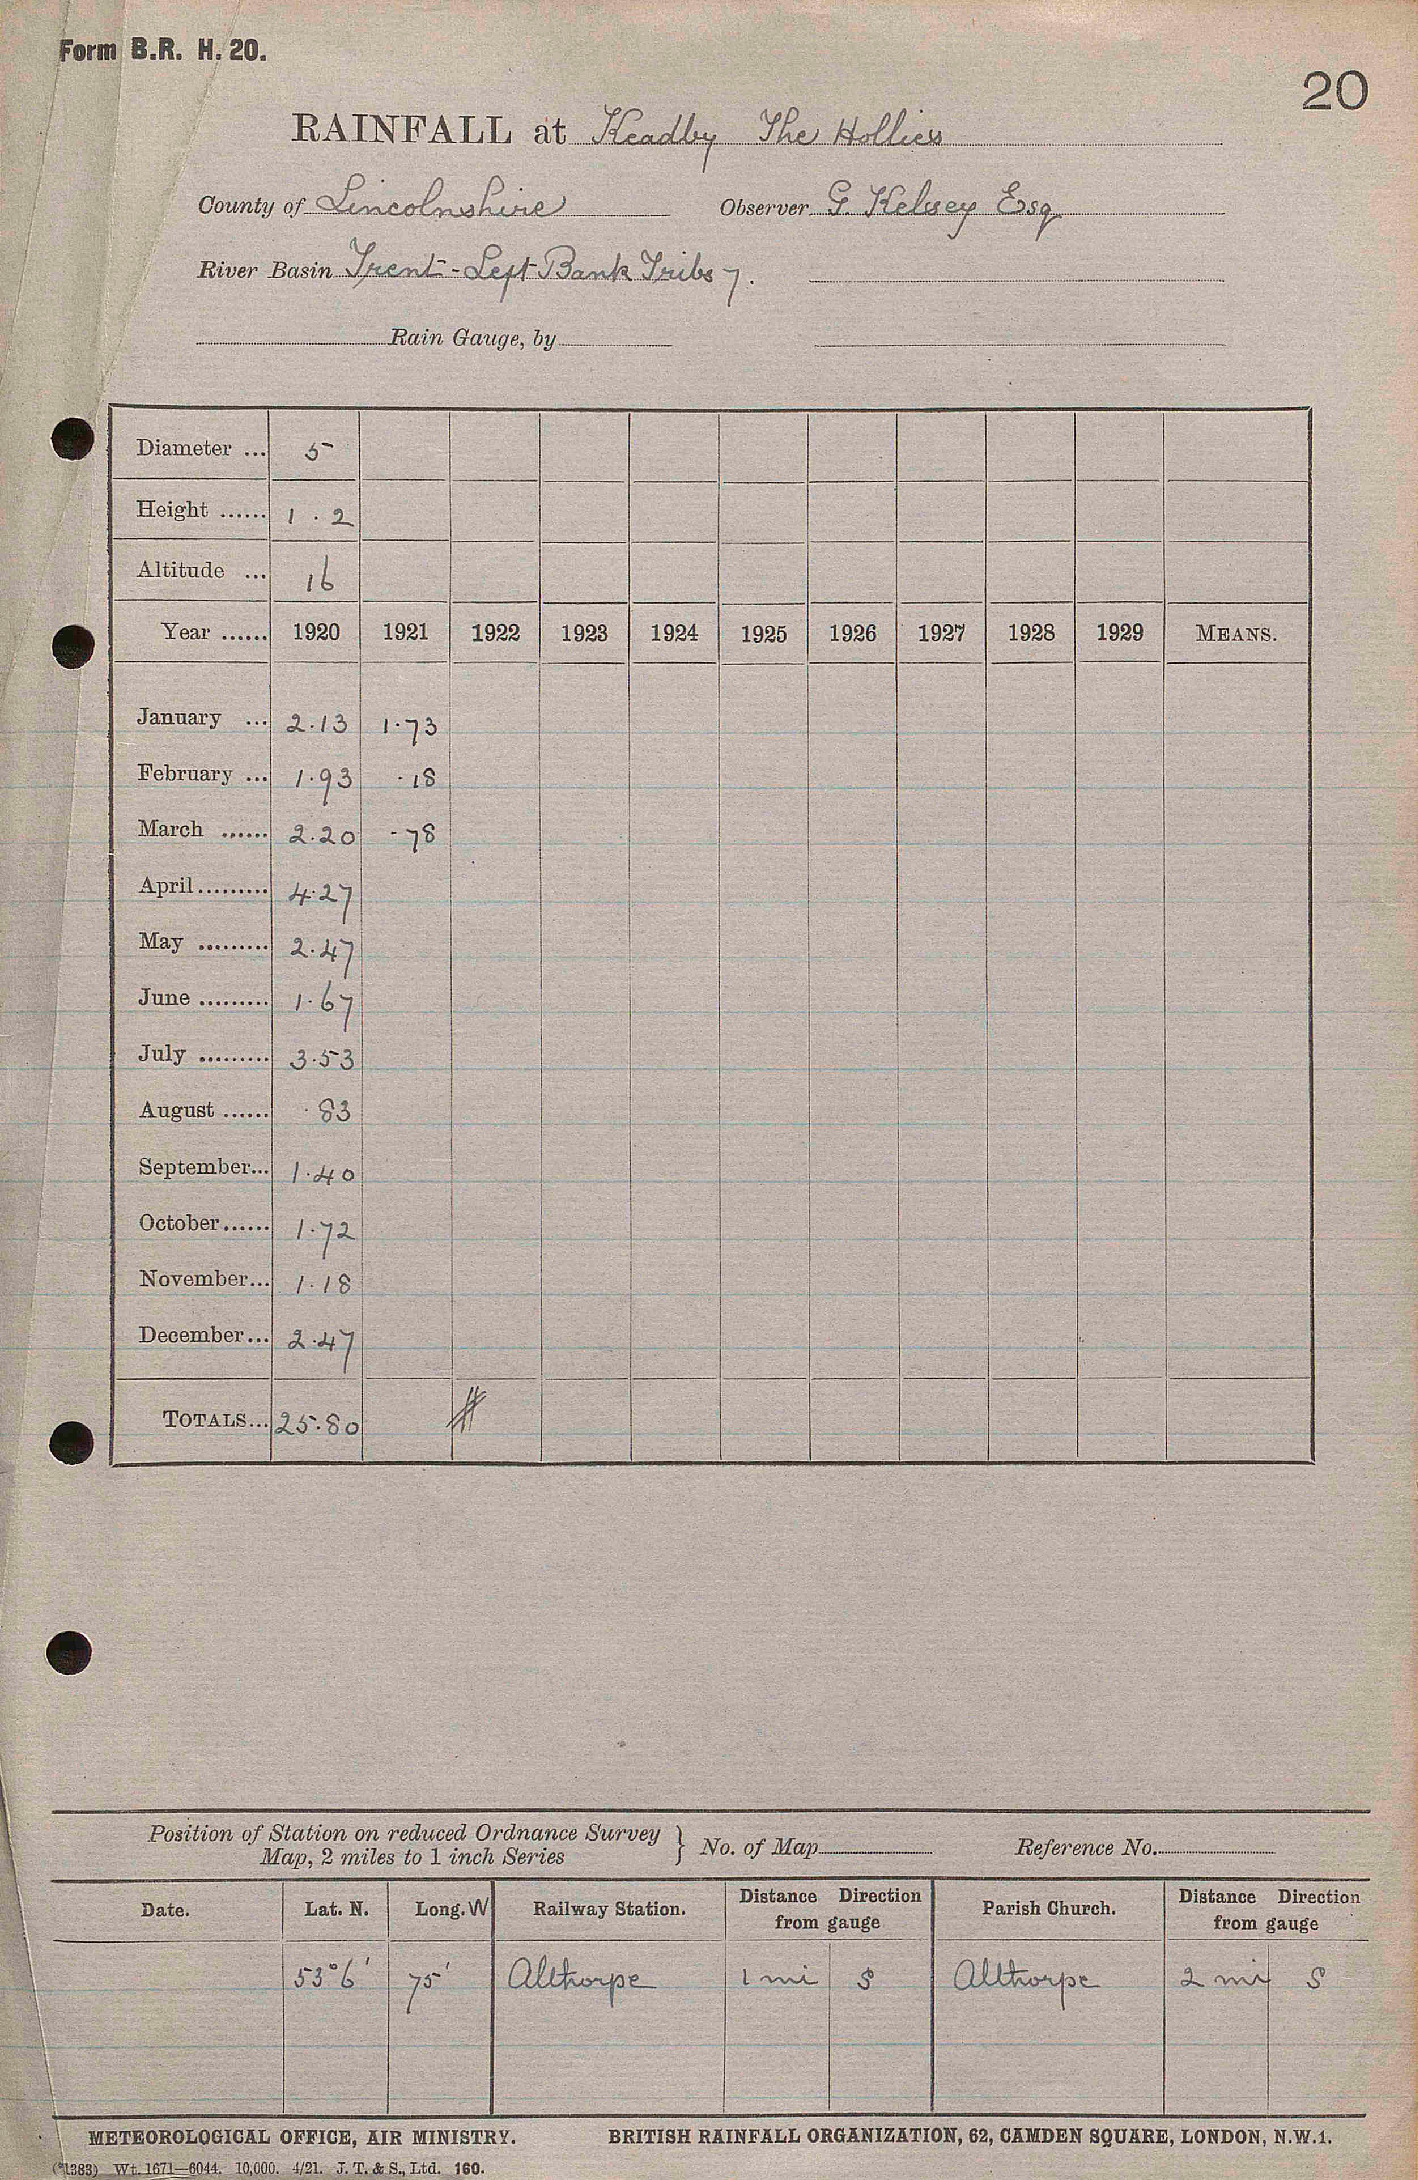 Form B.R. H. 20.
20
RAINFALL at Keadby The Hollies
County of Lincolnshire Observer G. Kelsey Esq
River Basin Trent - Left Bank Tribs 7.
Rain Gauge, by
Diameter ... 5
Height ...... 1.2
Altitude ... 16
Year ...... 1920 1921 1922 1923 1924 1925 1926 1927 1928 1929 MEANS.
January ... 2.13 1.73
February ... 1.93 .18
March ...... 2.20 .78
April......... 4.27
May ......... 2.47
June ......... 1.67
July ......... 3.53
August ...... .83
September... 1.40
October...... 1.72
November... 1.18
December... 2.47
TOTALS... 25.80
Position of Station on reduced Ordnance Survey
Map, 2 miles to 1 inch Series } No. of Map Reference No.
Date. Lat. N. Long. W Railway Station. Distance Direction from gauge Parish Church. Distance Direction from gauge
53°6' 75' Althorpe 1 mi S Althorpe 2 mi S
METEOROLOGICAL OFFICE, AIR MINISTRY. BRITISH RAINFALL ORGANIZATION, 62, CAMDEN SQUARE, LONDON, N.W.1.
(*1383) Wt. 1671—6044. 10,000. 4/21. J. T. & S., Ltd. 160.